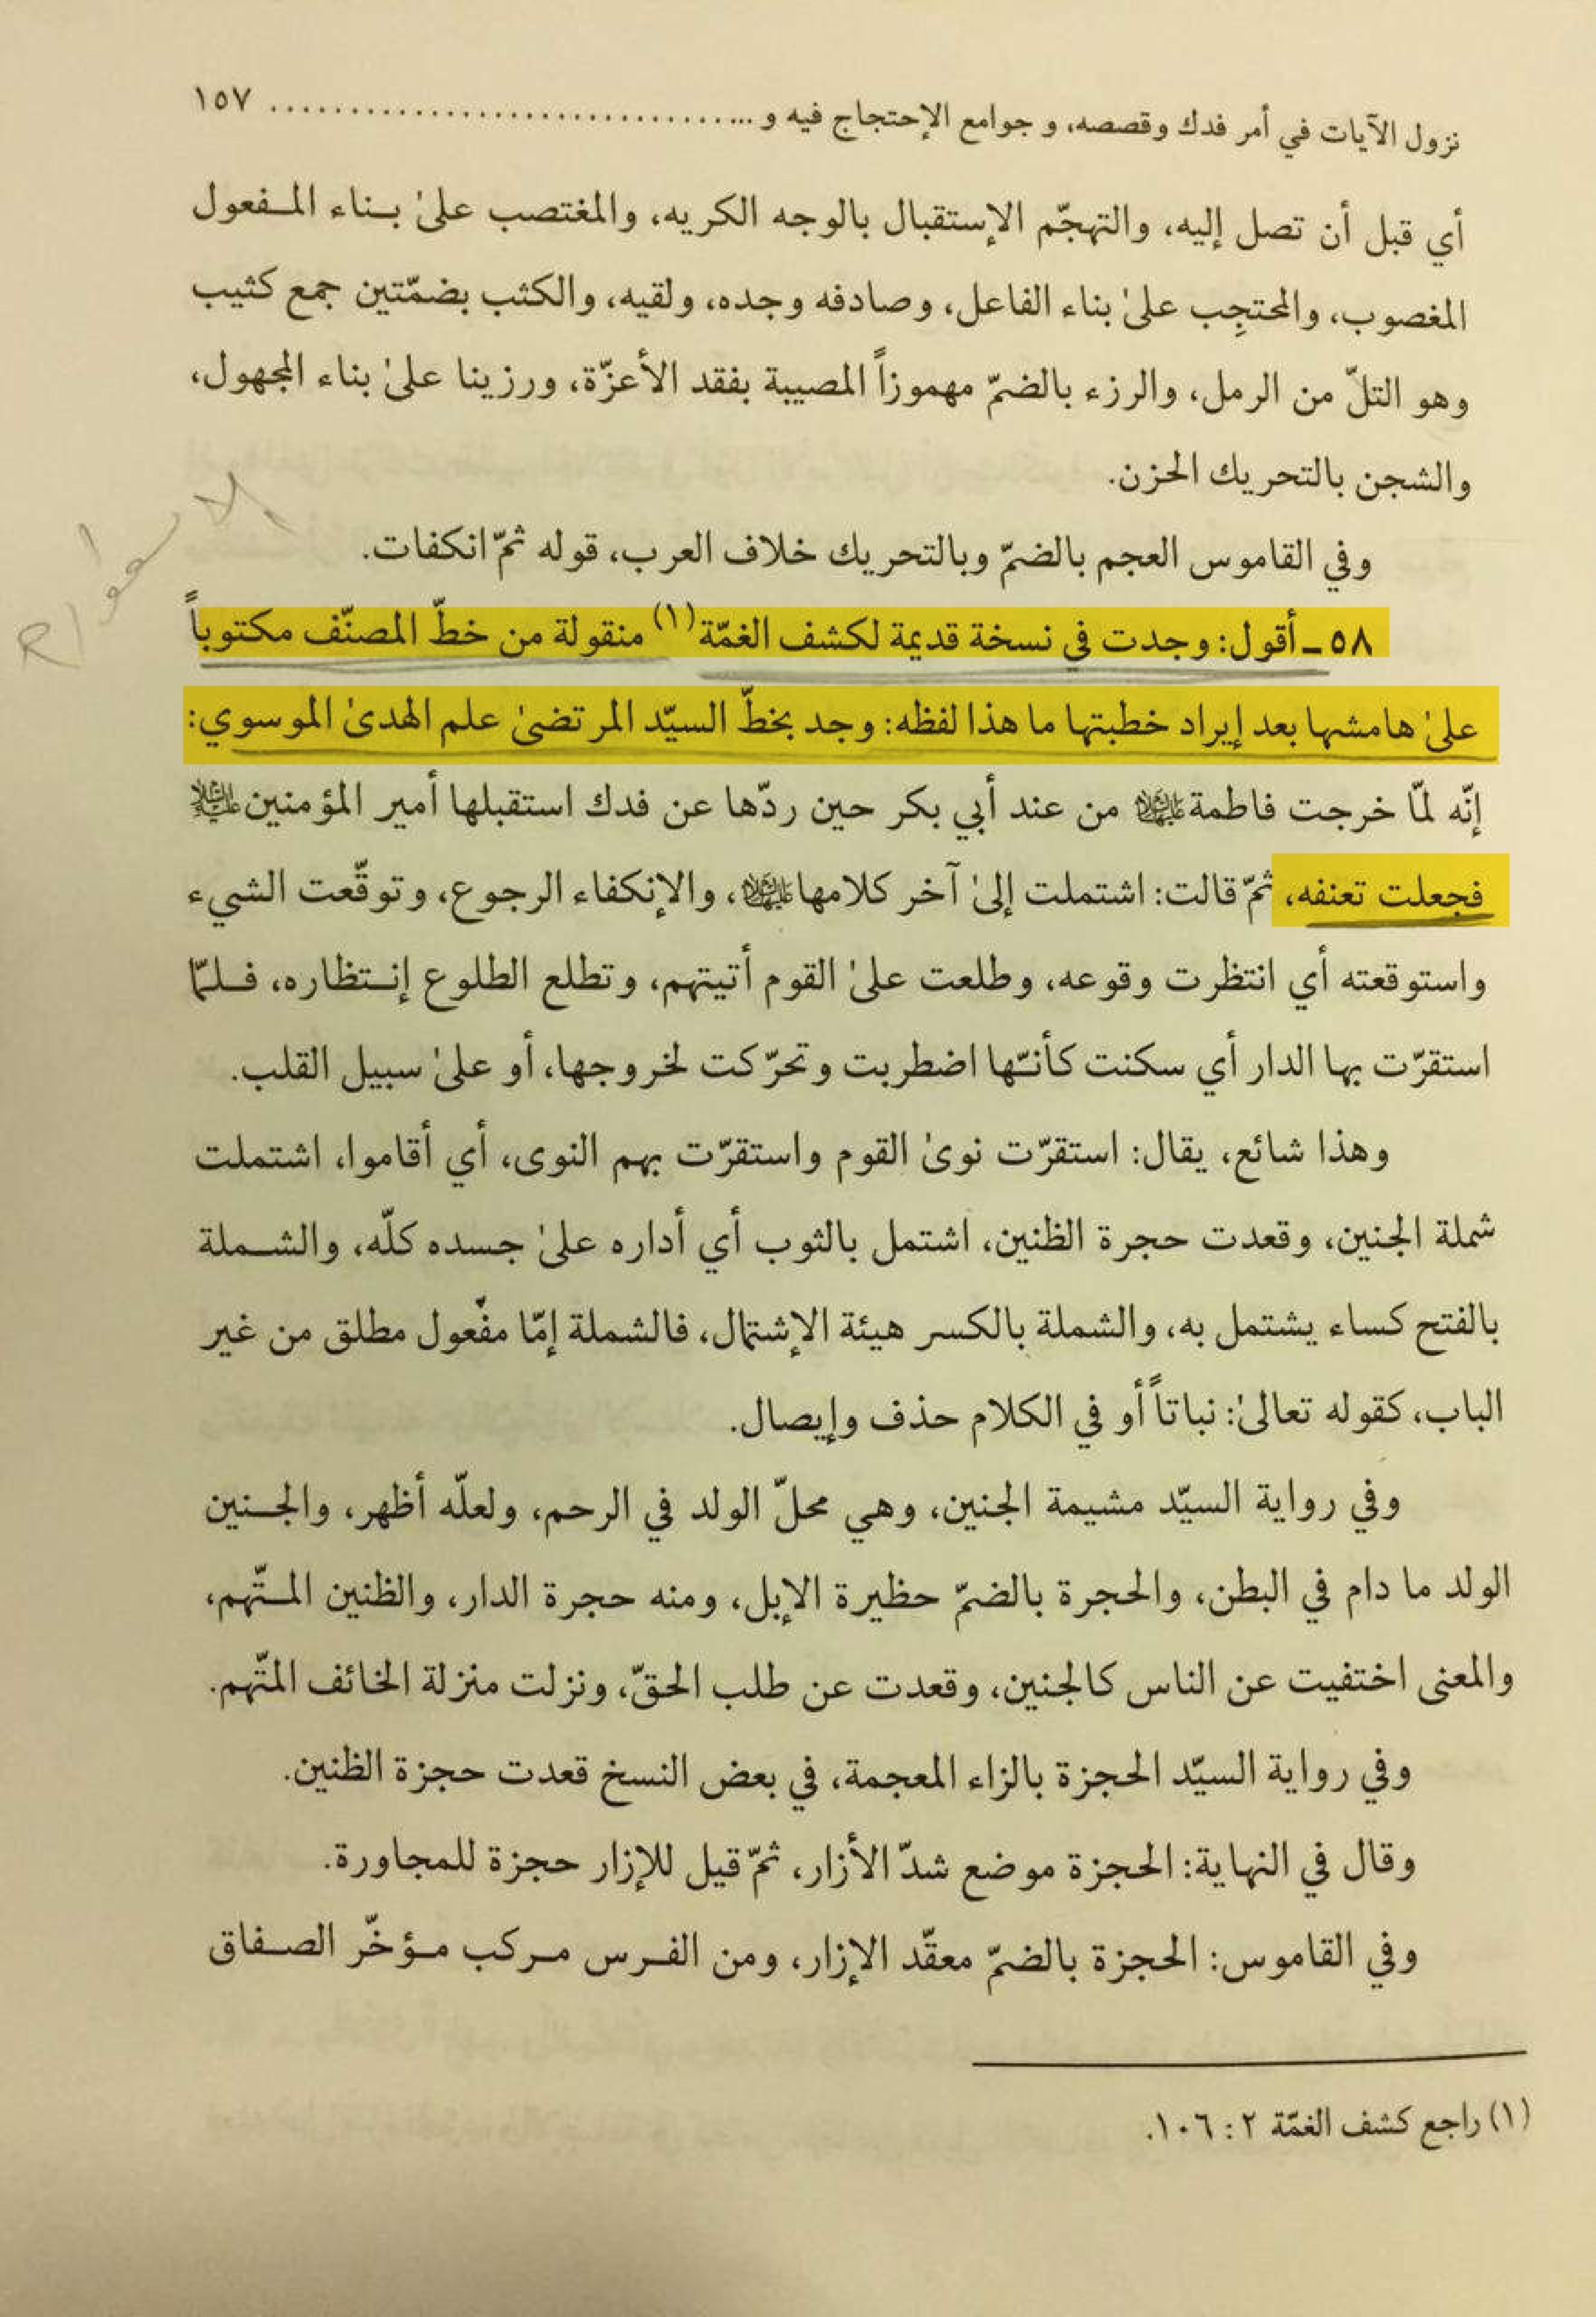 نزول الآيات في أمر فدك وقصصه، و جوامع الإحتجاج فيه و ................................ ١٥٧
أي قبل أن تصل إليه، والتهجّم الإستقبال بالوجه الكريه، والمغتصب علىٰ بـناء المـفعول
المغصوب، والمحتجِب علىٰ بناء الفاعل، وصادفه وجده، ولقيه، والكثب بضمّتين جمع كثيب
وهو التلّ من الرمل، والرزء بالضمّ مهموزاً المصيبة بفقد الأعزّة، ورزينا علىٰ بناء المجهول،
والشجن بالتحريك الحزن.
وفي القاموس العجم بالضمّ وبالتحريك خلاف العرب، قوله ثمّ انكفات.
٥٨ ـ أقول: وجدت في نسخة قديمة لكشف الغمّة(١) منقولة من خطّ المصنّف مكتوباً
علىٰ هامشها بعد إيراد خطبتها ما هذا لفظه: وجد بخطّ السيّد المرتضىٰ علم الهدىٰ الموسوي:
إنّه لمّا خرجت فاطمة عليها السلام من عند أبي بكر حين ردّها عن فدك استقبلها أمير المؤمنين عليه السلام
فجعلت تعنفه، ثمّ قالت: اشتملت إلىٰ آخر كلامها عليها السلام، والإنكفاء الرجوع، وتوقّعت الشيء
واستوقعته أي انتظرت وقوعه، وطلعت علىٰ القوم أتيتهم، وتطلع الطلوع إنـتظاره، فـلمّا
استقرّت بها الدار أي سكنت كأنّها اضطربت وتحرّكت لخروجها، أو علىٰ سبيل القلب.
وهذا شائع، يقال: استقرّت نوىٰ القوم واستقرّت بهم النوى، أي أقاموا، اشتملت
شملة الجنين، وقعدت حجرة الظنين، اشتمل بالثوب أي أداره علىٰ جسده كلّه، والشـملة
بالفتح كساء يشتمل به، والشملة بالكسر هيئة الإشتمال، فالشملة إمّا مفعول مطلق من غير
الباب، كقوله تعالىٰ: نباتاً أو في الكلام حذف وإيصال.
وفي رواية السيّد مشيمة الجنين، وهي محلّ الولد في الرحم، ولعلّه أظهر، والجـنين
الولد ما دام في البطن، والحجرة بالضمّ حظيرة الإبل، ومنه حجرة الدار، والظنين المـتّهم،
والمعنى اختفيت عن الناس كالجنين، وقعدت عن طلب الحقّ، ونزلت منزلة الخائف المتّهم.
وفي رواية السيّد الحجزة بالزاء المعجمة، في بعض النسخ قعدت حجزة الظنين.
وقال في النهاية: الحجزة موضع شدّ الأزار، ثمّ قيل للإزار حجزة للمجاورة.
وفي القاموس: الحجزة بالضمّ معقّد الإزار، ومن الفـرس مـركب مـؤخّر الصـفاق
(١) راجع كشف الغمّة ٢ : ١٠٦.